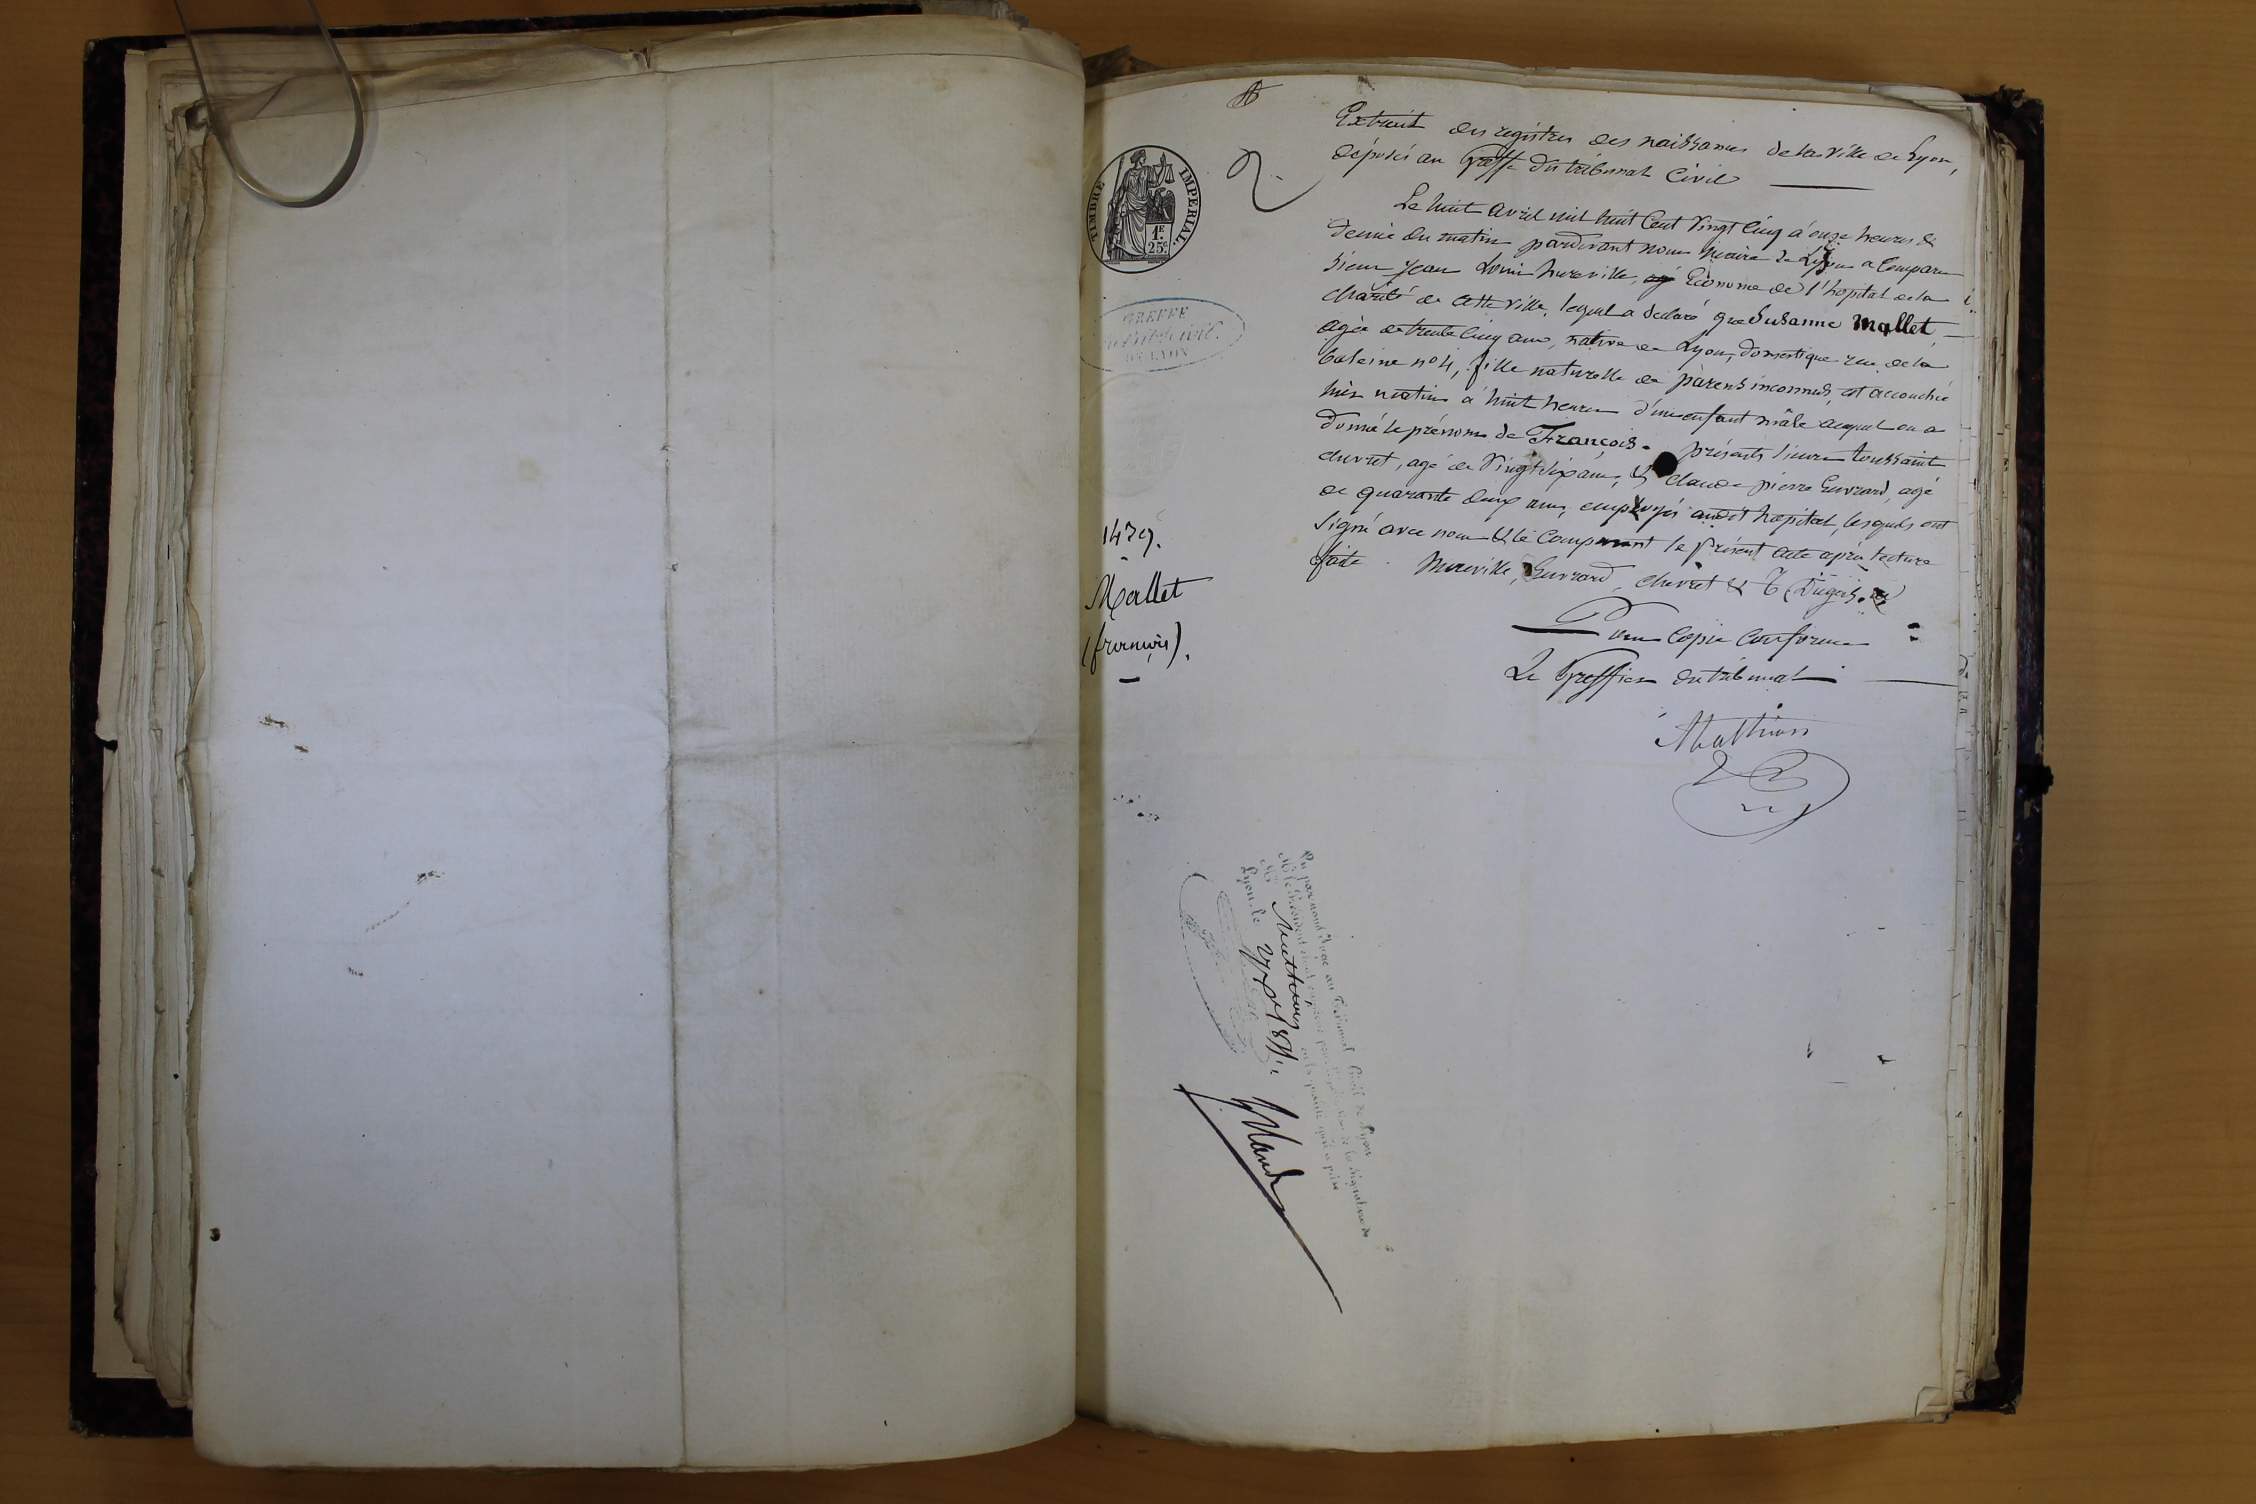 Extrait des registres des naissances de la ville de Lyon,
déposés au Greffe du tribunal Civil
Le huit avril mil huit Cent Vingt Cinq à onze heures &
demie du matin pardevant nous Maire de Lyon a Comparu
Sieur Jean Louis Mureville, Econome de l'hopital de la
charité de cette Ville, lequel a déclaré que Susanne Mallet,
agée de trente Cinq ans, native de Lyon, domestique rue de la
baleine nº 4, fille naturelle de parens inconnus, est accouchée
hier matin à huit heures d'un enfant mâle auquel on a
donné le prénom de François. présents Sieurs toussaint
chevret, agé de Vingt Six ans, & Claude pierre Guvrard, agé
de quarante deux ans, employés audit hopital, lesquels ont
signé avec nous & le Comparant le présent acte après lecture
faite. Mureville, Guvrard, chevret &
Pour Copie Conforme
Le Greffier du tribunal
Mathieu
TIMBRE IMPERIAL.
1F.
25c.
GREFFE
DE LYON
1439.
Mallet
(françois).
Vu par nous Juge au Tribunal Civil de Lyon
Mr le Président de la signature de
Mr Mathieu en la qualité qu'il a prise
Lyon, le